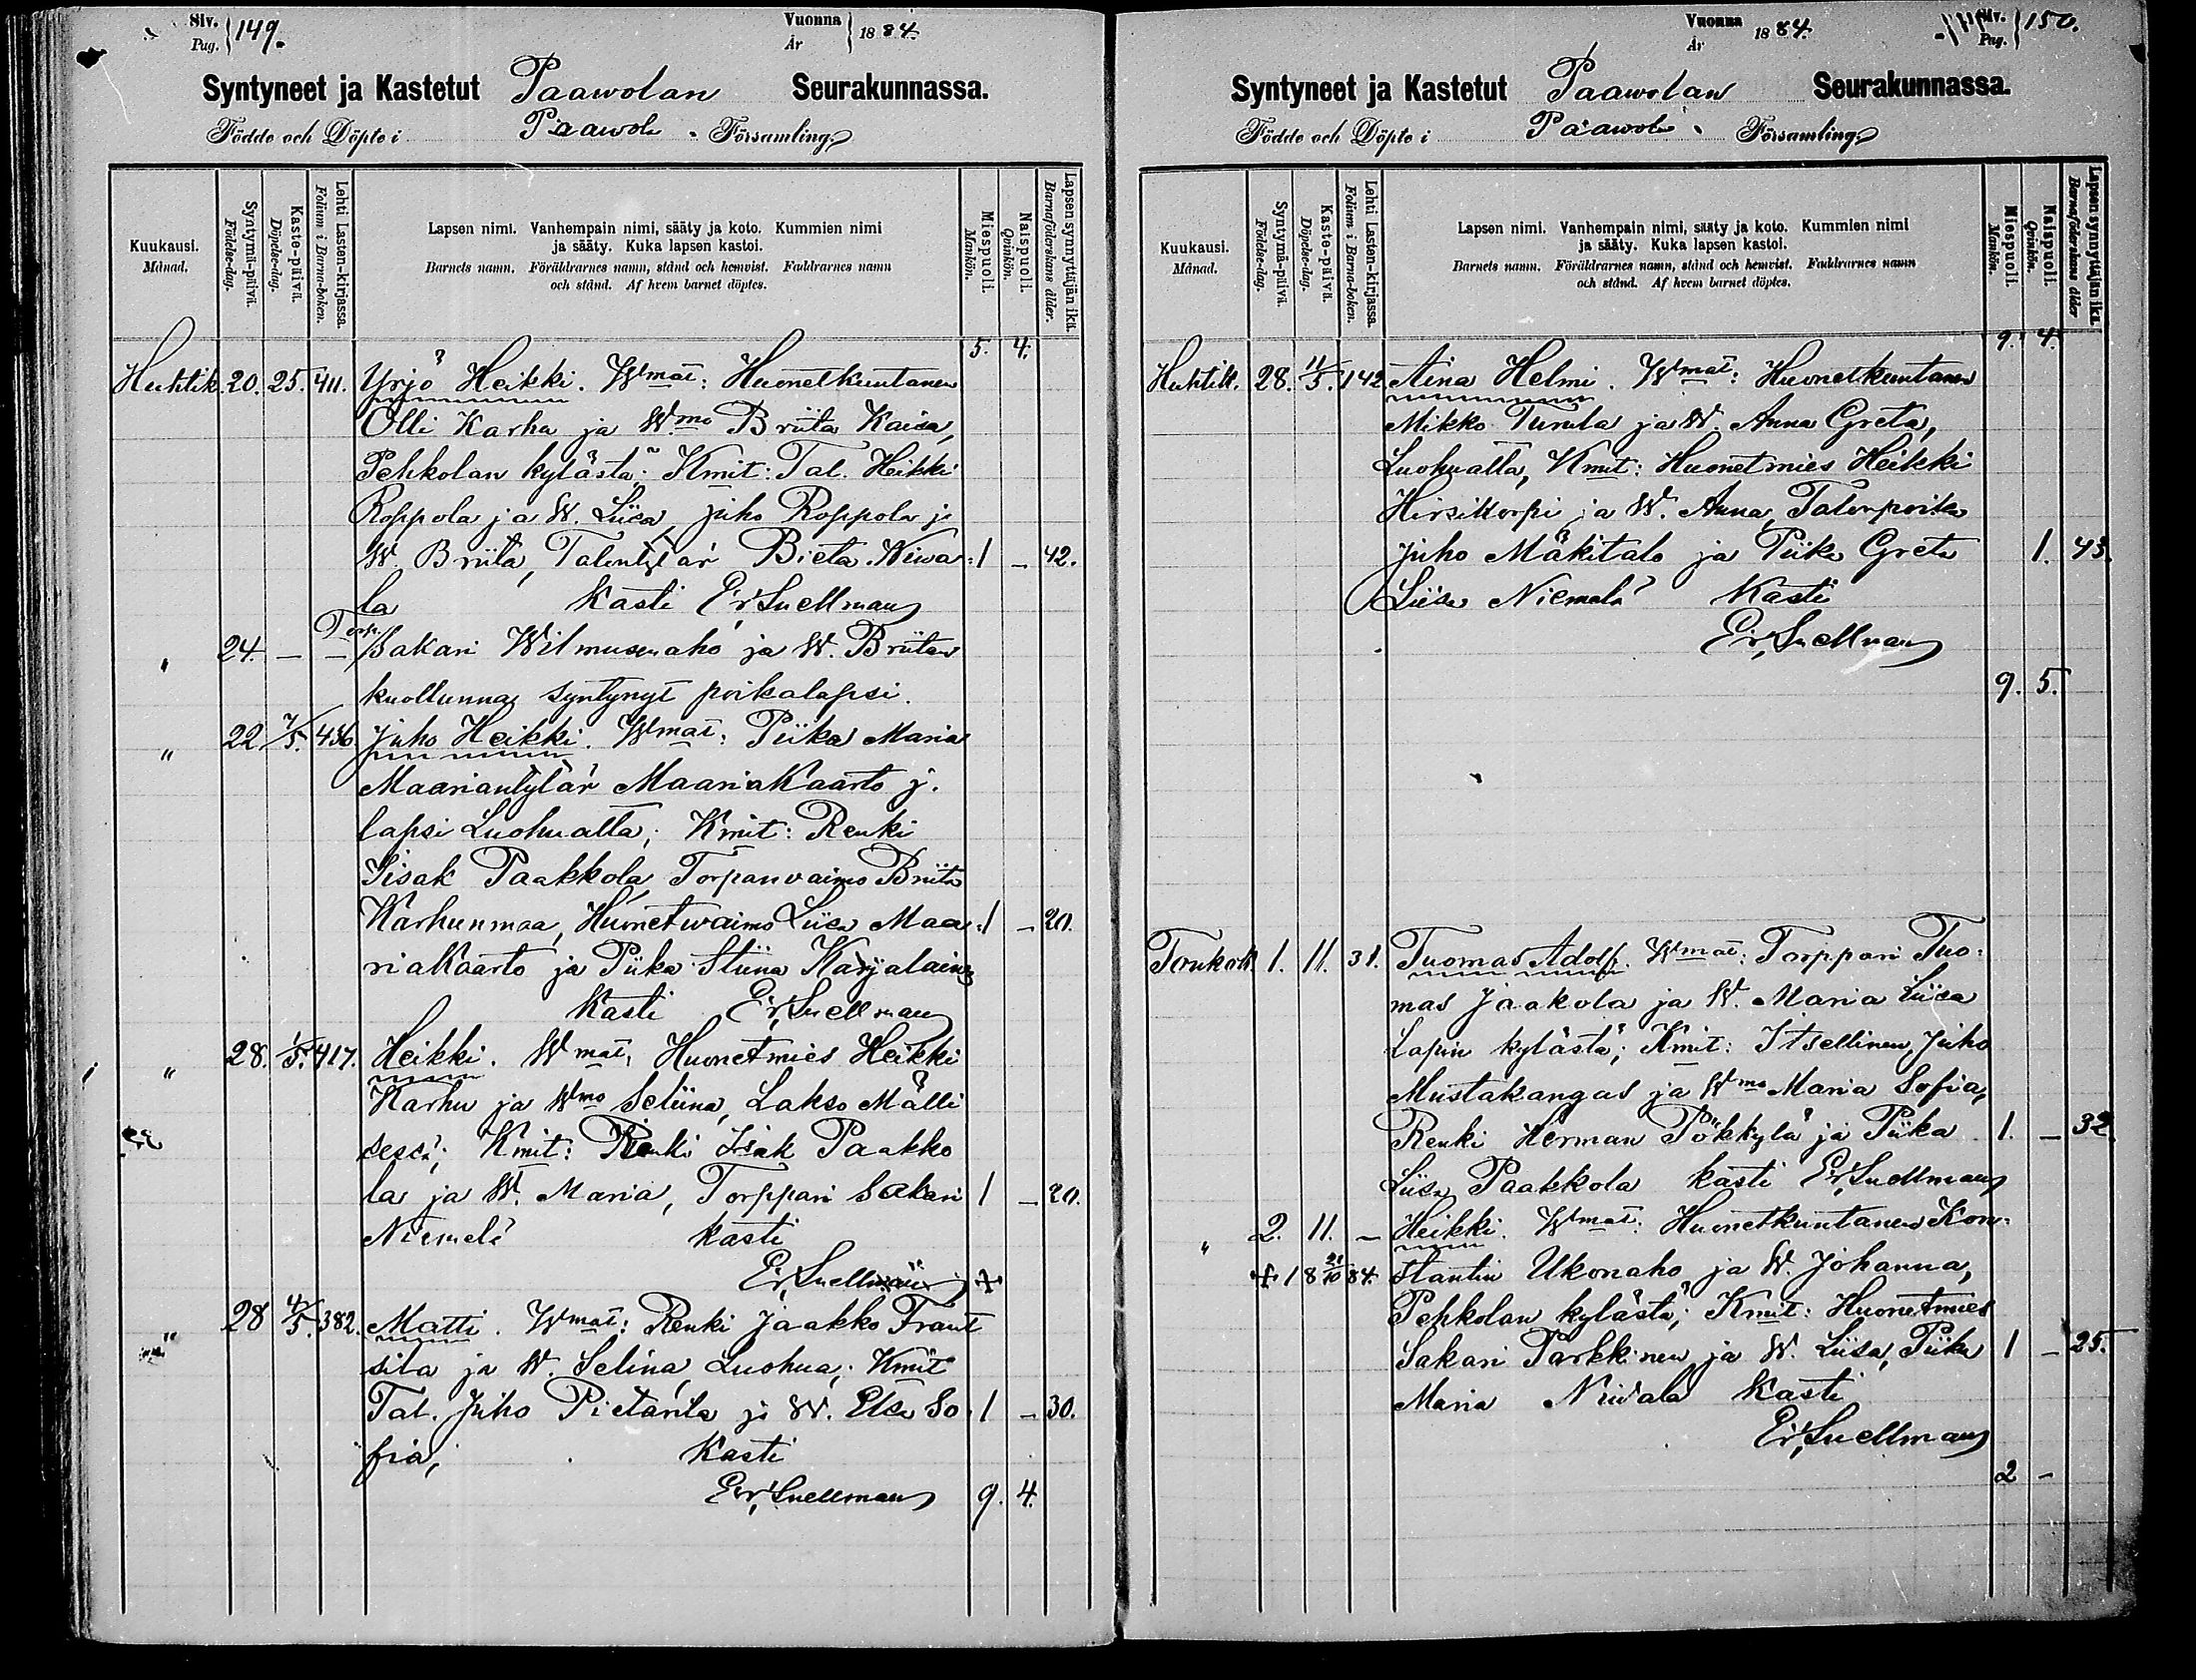 Siv. Pag. 149.
Vuonna År 1884.
Syntyneet ja Kastetut Paawolan Seurakunnassa.
Födde och Döpte i Paawola Församling
Kuukausi. Månad.
Syntymä-päivä. Födelse-dag.
Kaste-päivä. Döpelse-dag.
Lehti Lasten-kirjassa. Folium i Barna-boken.
Lapsen nimi. Vanhempain nimi, sääty ja koto. Kummien nimi
ja sääty. Kuka lapsen kastoi.
Barnets namn. Föräldrarnes namn, stånd och hemvist. Faddrarnes namn
och stånd. Af hvem barnet döptes.
Miespuoli. Mankön.
Naispuoli. Qvinkön.
Lapsen synnyttäjän ikä. Barnaföderskans ålder.
5. 4.
Huhtik. 20. 25. 411. Yrjö Heikki. Wmat: Huonetkuntanen
Olli Karhu ja W.mo Briita Kaisa,
Pehkolan kylästä; Kmit: Tal. Heikki
Roppola ja W. Liisa, Juho Roppola ja
W. Briita, Talontytär Bieta Niwa: 1 – 42.
la Kasti Er. Snellman
" 24. – – Torp. Sakari Wilmusenaho ja W. Briitan
kuolluna syntynyt poikalapsi.
" 22 7/5. 436 Juho Heikki. Wmat: Piika Maria
Maariantytär MaariaKaarto j.
lapsi Luohualta; Kmit: Renki
Iisak Paakkola, Torpanvaimo Briita
Karhunmaa, Huonetwaimo Liisa Maa: 1 – 20.
riaKaarto ja Piika Stiina Karjalainen
Kasti Er. Snellman
" 28. 1/5. 417. Heikki. Wmat, Huonetmies Heikki
Karhu ja Wmo Seliina, Lakso Mälli
sessä; Kmit: Renki Isak Paakko
la ja W. Maria, Torppari Sakari 1 – 20.
Niemelä Kasti
Er. Snellman
" 28 4/5. 382. Matti. Wmat: Renki Jaakko Frant
sila ja W. Selina, Luohua; Kmit
Tal. Juho Pietarila ja W. Elsa So 1 – 30.
fia; Kasti
Er. Snellman 9. 4.
Vuonna År 1884.
Siv. Pag. 150.
Syntyneet ja Kastetut Paawolan Seurakunnassa.
Födde och Döpte i Paawola Församling
Kuukausi. Månad.
Syntymä-päivä. Födelse-dag.
Kaste-päivä. Döpelse-dag.
Lehti Lasten-kirjassa. Folium i Barna-boken.
Lapsen nimi. Vanhempain nimi, sääty ja koto. Kummien nimi
ja sääty. Kuka lapsen kastoi.
Barnets namn. Föräldrarnes namn, stånd och hemvist. Faddrarnes namn
och stånd. Af hvem barnet döptes.
Miespuoli. Mankön.
Naispuoli. Qvinkön.
Lapsen synnyttäjän ikä. Barnaföderskans ålder
9. 4.
Huhtik. 28. 11/5. 142 Aina Helmi. Wmat: Huonetkuntanen
Mikko Turula ja W. Anna Greta,
Luohualta, Kmit: Huonetmies Heikki
Hirsikorpi ja W. Anna, Talonpoika
Juho Mäkitalo ja Piika Greta 1. 43.
Liisa Niemelä Kasti
Er. Snellman
9. 5.
Toukok. 1. 11. 31. Tuomas Adolf. Wmat: Torppari Tuo:
mas Jaakola ja W. Maria Liisa
Lapin kylästä; Kmit: Itsellinen, Juho
Mustakangas ja Wmo Maria Sofia,
Renki Herman Pökkylä ja Piika 1. – 32
Liisa Paakkola Kasti Er. Snellman
" 2. 11. – Heikki. Wmat: Huonetkuntanen Kon:
+ 18 21/10 84. stantin Ukonaho ja W. Johanna,
Pehkolan kylästä; Kmit: Huonetmies
Sakari Parkkinen ja W. Liisa, Piika 1 – 25.
Maria Niwala Kasti
Er. Snellman
2 –